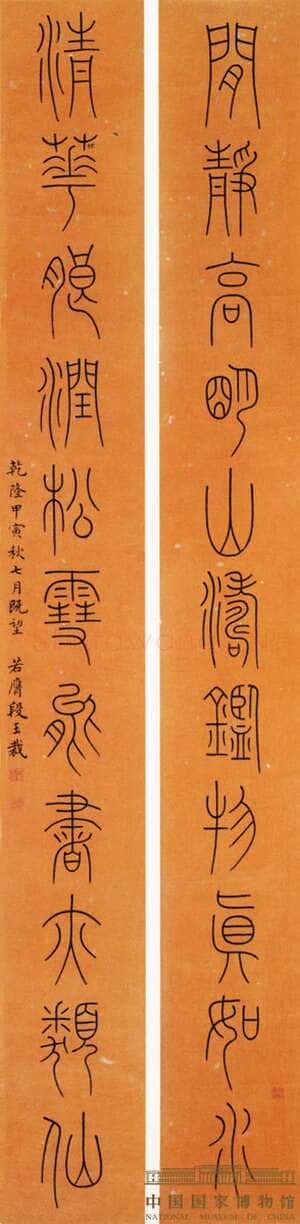 閒靜高明山濤鑑物眞如水
清華朖潤松雪能書亦類仙
乾隆甲寅秋七月既望 若膺段玉裁
中国国家博物馆
NATIONAL MUSEUM OF CHINA